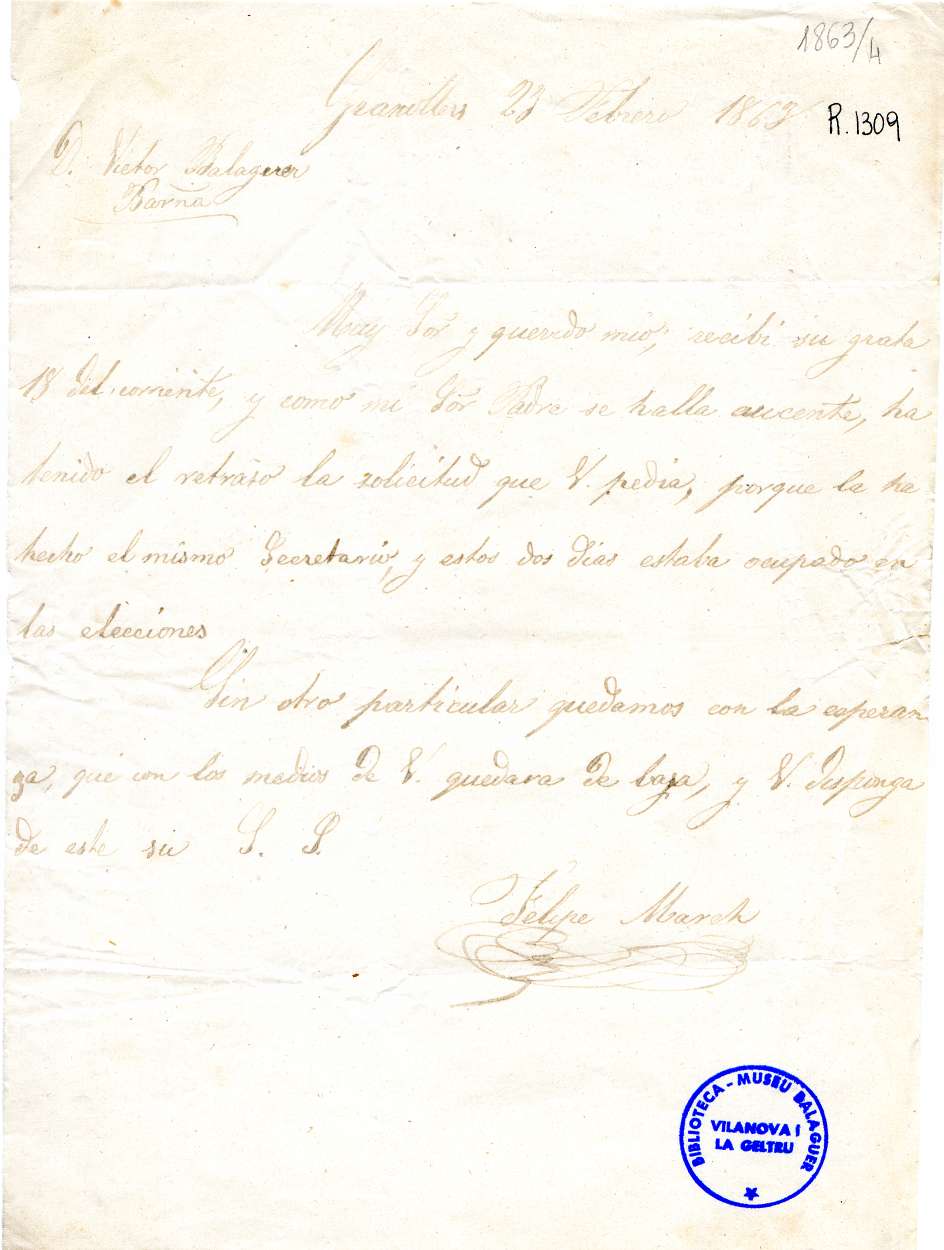 1863/4
Granollers 23 Febrero 1863
R.1309
D. Victor Balaguer
Barna
Muy Sor y querido mio; recibi su grata
18 del corriente, y como mi Sor Padre se halla aucente, ha
tenido el retraso la solicitud que V. pedia, porque la ha
hecho el mismo Secretario, y estos dos dias estaba ocupado en
las elecciones
Sin otro particular quedamos con la esperan
za, que con los medios de V. quedara de baja, y V. disponga
de este su S. S.
Felipe March
BIBLIOTECA - MUSEU BALAGUER
VILANOVA I
LA GELTRU